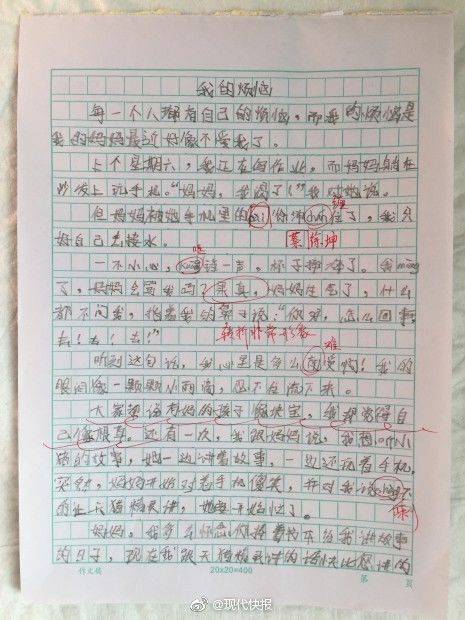 我的烦恼
每一个人都有自己的烦恼，而我的烦恼是
我的妈妈最近好像不爱我了。
上个星期六，我正在写作业，而妈妈躺在
沙发上玩手机。“妈妈，我渴了！”我对她说。
但妈妈被她手机里的
住了，我只
缠
好自己去接水。
蔡徐坤
一不小心，
一声，杯子摔碎了。我
了，妈妈会骂我吗？果真，妈妈生气了，什么
都不问我，指着我的鼻子说：“你滚，怎么回事，
去！去！去！”
转折非常形象
难
听到这句话，我心里是多么
受啊！我的
眼泪像一颗颗小雨滴，忍不住流下来。
大家都说有妈的孩子像块宝，我却觉得自
己像根草。还有一次，我跟妈妈说，我想听小
猪的故事，她一边讲着故事，一边还看着手机，
突然，妈妈开始对着手机傻笑，并对我说
让天猫精灵讲，她
开始忙了。
妈妈，我多么怀念你捧着书本给我讲故事
的日子，现在我跟天猫精灵讲的话快比您讲的
作文纸
20×20=400
第 页
@现代快报